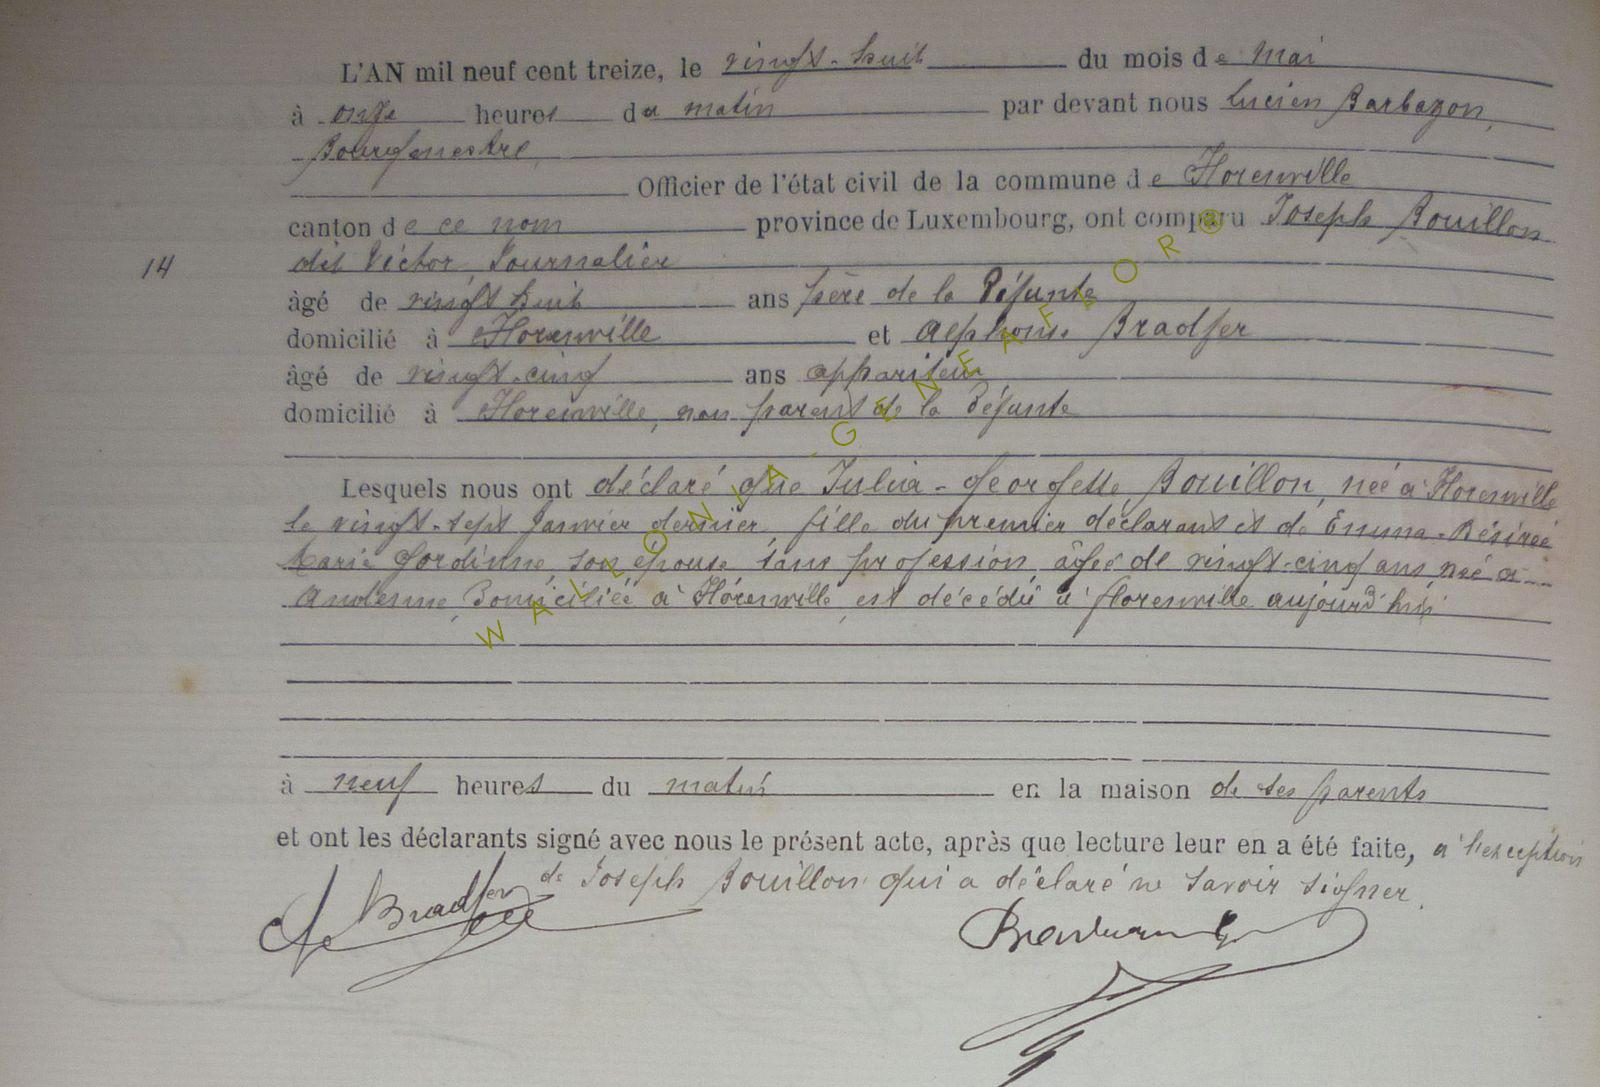 L'AN mil neuf cent treize, le vingt-huit du mois de Mai
à onze heures du matin par devant nous Lucien Barbazon,
Bourgmestre,
Officier de l'état civil de la commune de Florenville
canton de ce nom province de Luxembourg, ont comparu Joseph Bouillon
14 dit Victor, Journalier
âgé de vingt huit ans père de la Défunte
domicilié à Florenville et Alphonse Bradfer
âgé de vingt-cinq ans appariteur
domicilié à Florenville, non parent de la Défunte
Lesquels nous ont déclaré que Julia-Georgette Bouillon, née à Florenville
le vingt-sept Janvier dernier, fille du premier déclarant et de Emma-Désirée
Marie Gordinne son épouse sans profession âgée de vingt-cinq ans, née à
Andenne, Domiciliée à Florenville, est décédée à Florenville aujourd'hui
à neuf heures du matin en la maison de ses parents
et ont les déclarants signé avec nous le présent acte, après que lecture leur en a été faite, à l'exception
de Joseph Bouillon qui a déclaré ne savoir signer.
Bradfer
WALLONIA-GENEAFLOR®